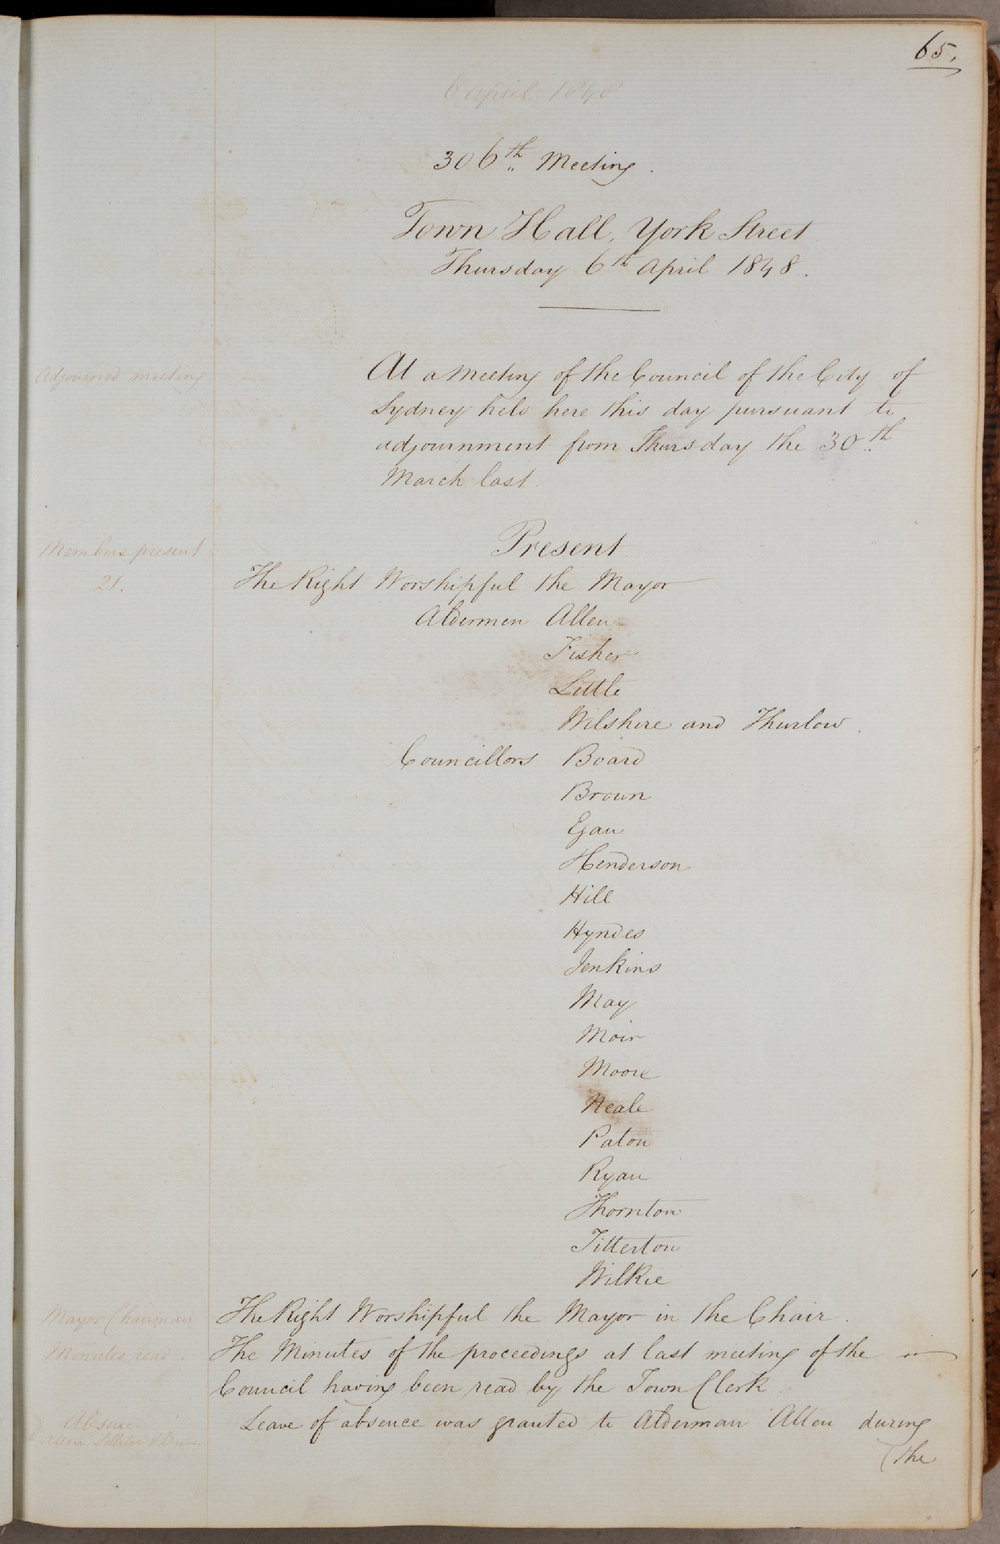 65.
6 April 1848
306th Meeting.
Town Hall, York Street
Thursday 6th April 1848.
Adjourned meeting
At a Meeting of the Council of the City of
Sydney held here this day pursuant to
adjournment from Thursday the 30th
March last
Members present
21.
Present
The Right Worshipful the Mayor
Aldermen Allen
Fisher
Little
Wilshire and Thurlow.
Councillors Board
Brown
Egan
Henderson
Hill
Hyndes
Jenkins
May
Moir
Moore
Neale
Paton
Ryan
Thornton
Titterton
Wilkie
Mayor Chairman
The Right Worshipful the Mayor in the Chair.
Minutes read.
The Minutes of the proceedings at last meeting of the
Council having been read by the Town Clerk
Leave of absence was granted to Alderman Allen during
(the